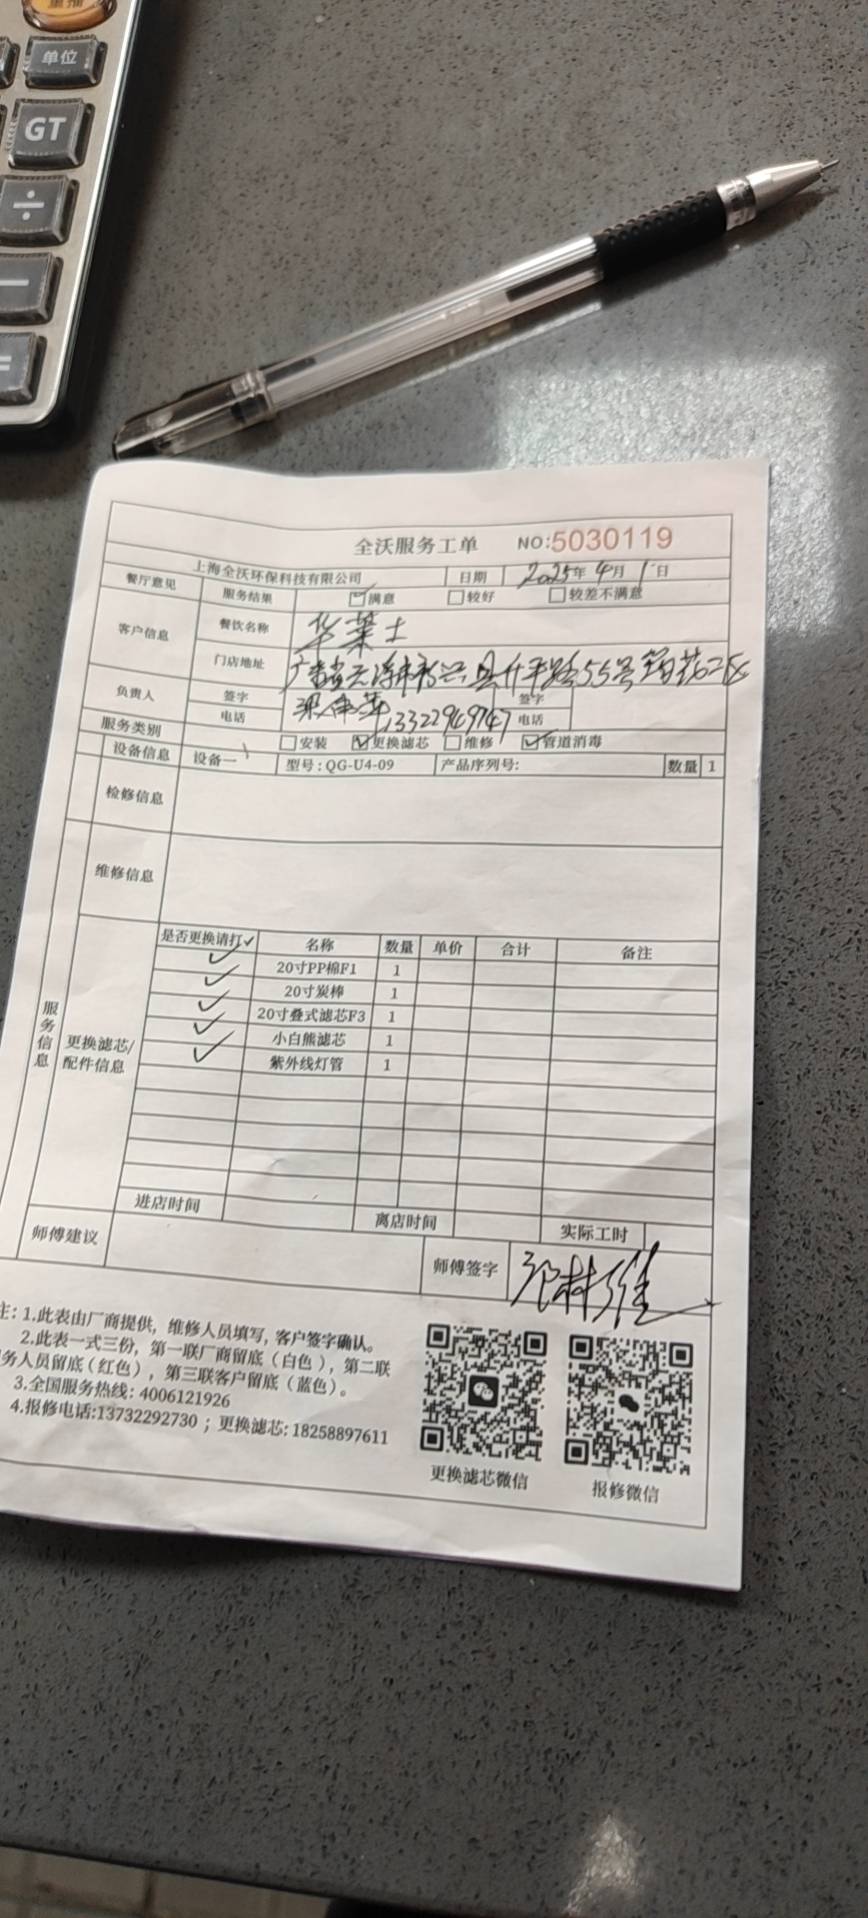 重播
单位
GT
÷
−
=
全沃服务工单 NO:5030119
上海全沃环保科技有限公司 日期 2025年4月1日
餐厅意见 服务结果 满意 较好 较差不满意
客户信息 餐饮名称 华莱士
门店地址 广东省云浮市新兴县升平路55号
负责人 签字 签字
电话 13322949747 电话
服务类别 安装 更换滤芯 维修 管道消毒
设备信息 设备一 型号:QG-U4-09 产品序列号: 数量 1
检修信息
维修信息
服务信息
更换滤芯/
配件信息
是否更换请打✓ 名称 数量 单价 合计 备注
✓ 20寸PP棉F1 1
✓ 20寸炭棒 1
✓ 20寸叠式滤芯F3 1
✓ 小白熊滤芯 1
✓ 紫外线灯管 1
进店时间 离店时间 实际工时
师傅建议 师傅签字
注：1.此表由厂商提供，维修人员填写, 客户签字确认。
2.此表一式三份，第一联厂商留底（白色），第二联
务人员留底(红色），第三联客户留底（蓝色）。
3.全国服务热线: 4006121926
4.报修电话:13732292730 ；更换滤芯: 18258897611
更换滤芯微信 报修微信